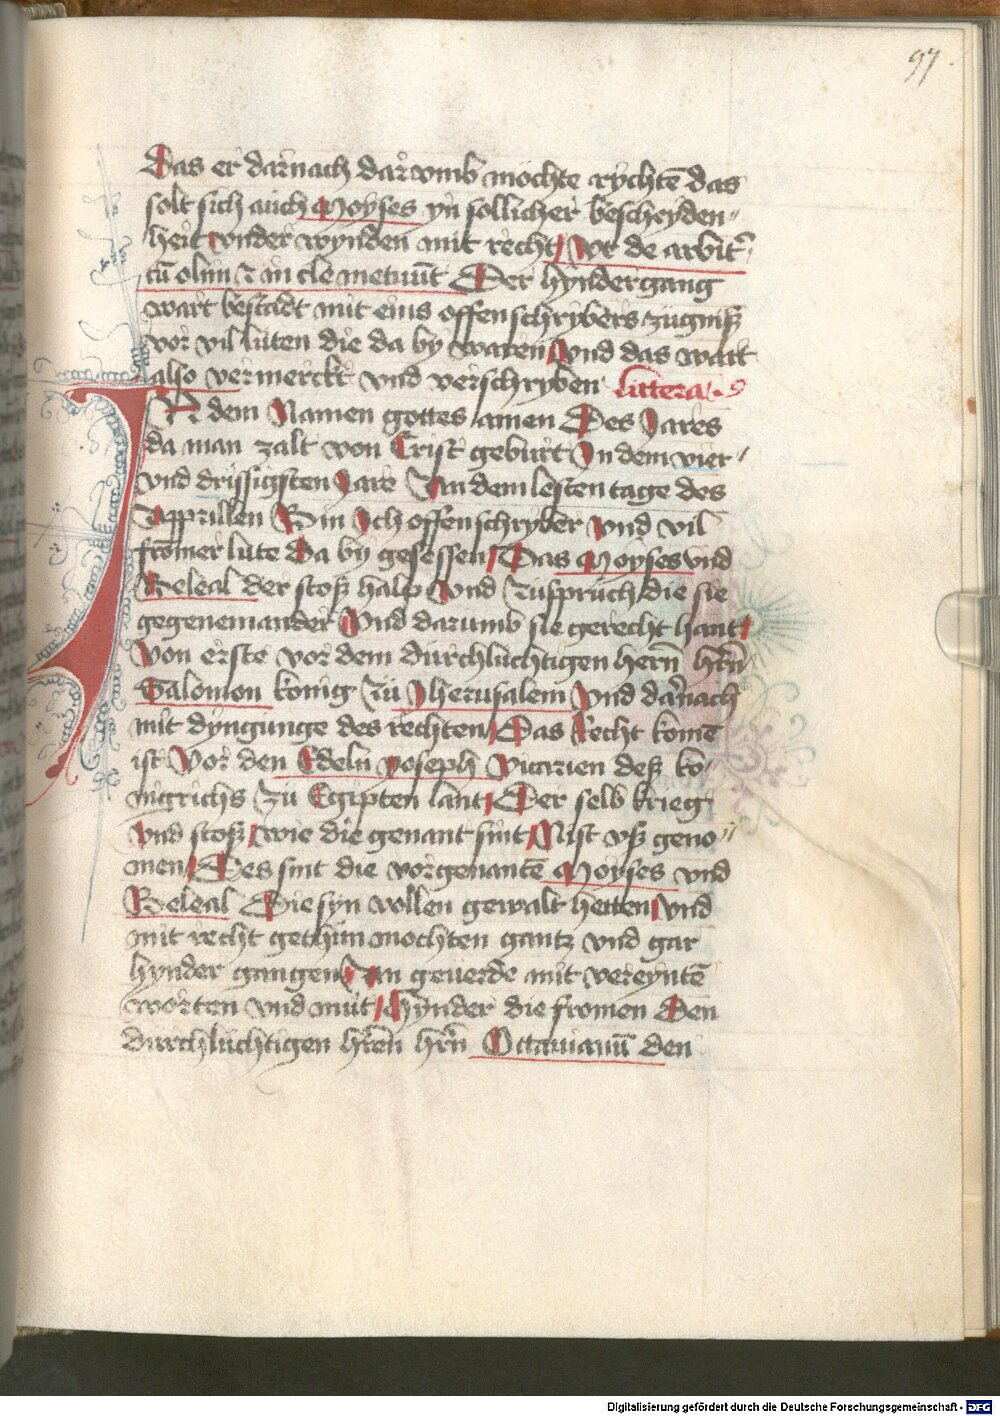 97
Das er darnach darvmb mochte rychtē das
solt sich auch Moyses yn sollicher bescheyden"
heit vnder wynden mit recht / Vt de arbit̄
cū olim 7 in cle metuūt Der hyndergang
wart bestadt mit eins offenschrybers zügniß
vor vil luten die da by waren / Vnd das wart
also vermerckt vnd verschryben littera
IN dem Namen gottes amen Des Jares
da man zalt von Crist geburt In dem vier"
vnd drissigsten Jare An dem lesten tage des
Apprillen Bin Ich offenschryber Vnd vil
fromer lute Da by gesessen / Das Moyses vnd
Beleal der stoß halp Vnd Züspruch die sie
gegeneinander Vnd darumb sie gerecht hant /
Von erste vor dem durchluchtigen hern̄ hrn̄
Salomon konig Zü Jherusalem Vnd darnach
mit dyngunge des rechten / Das Recht komē
ist Vor den Edeln yoseph Vicarien deß ko"
nigrichs Zü Egipten lant / Der selb krieg
Vnd stoß / wie die genant sint / Nist vß geno"
men / Des sint die vorgenantē Moyses vnd
Beleal Die syn wollen gewalt hetten / Vnd
mit recht gethün mochten gantz vnd gar
hynder gangen / An geuerde mit vereyntē
worten vnd müt / Hynder die fromen Den
durchluchtigen hrēn hrn̄ Ottauianū den
Digitalisierung gefördert durch die Deutsche Forschungsgemeinschaft - DFG